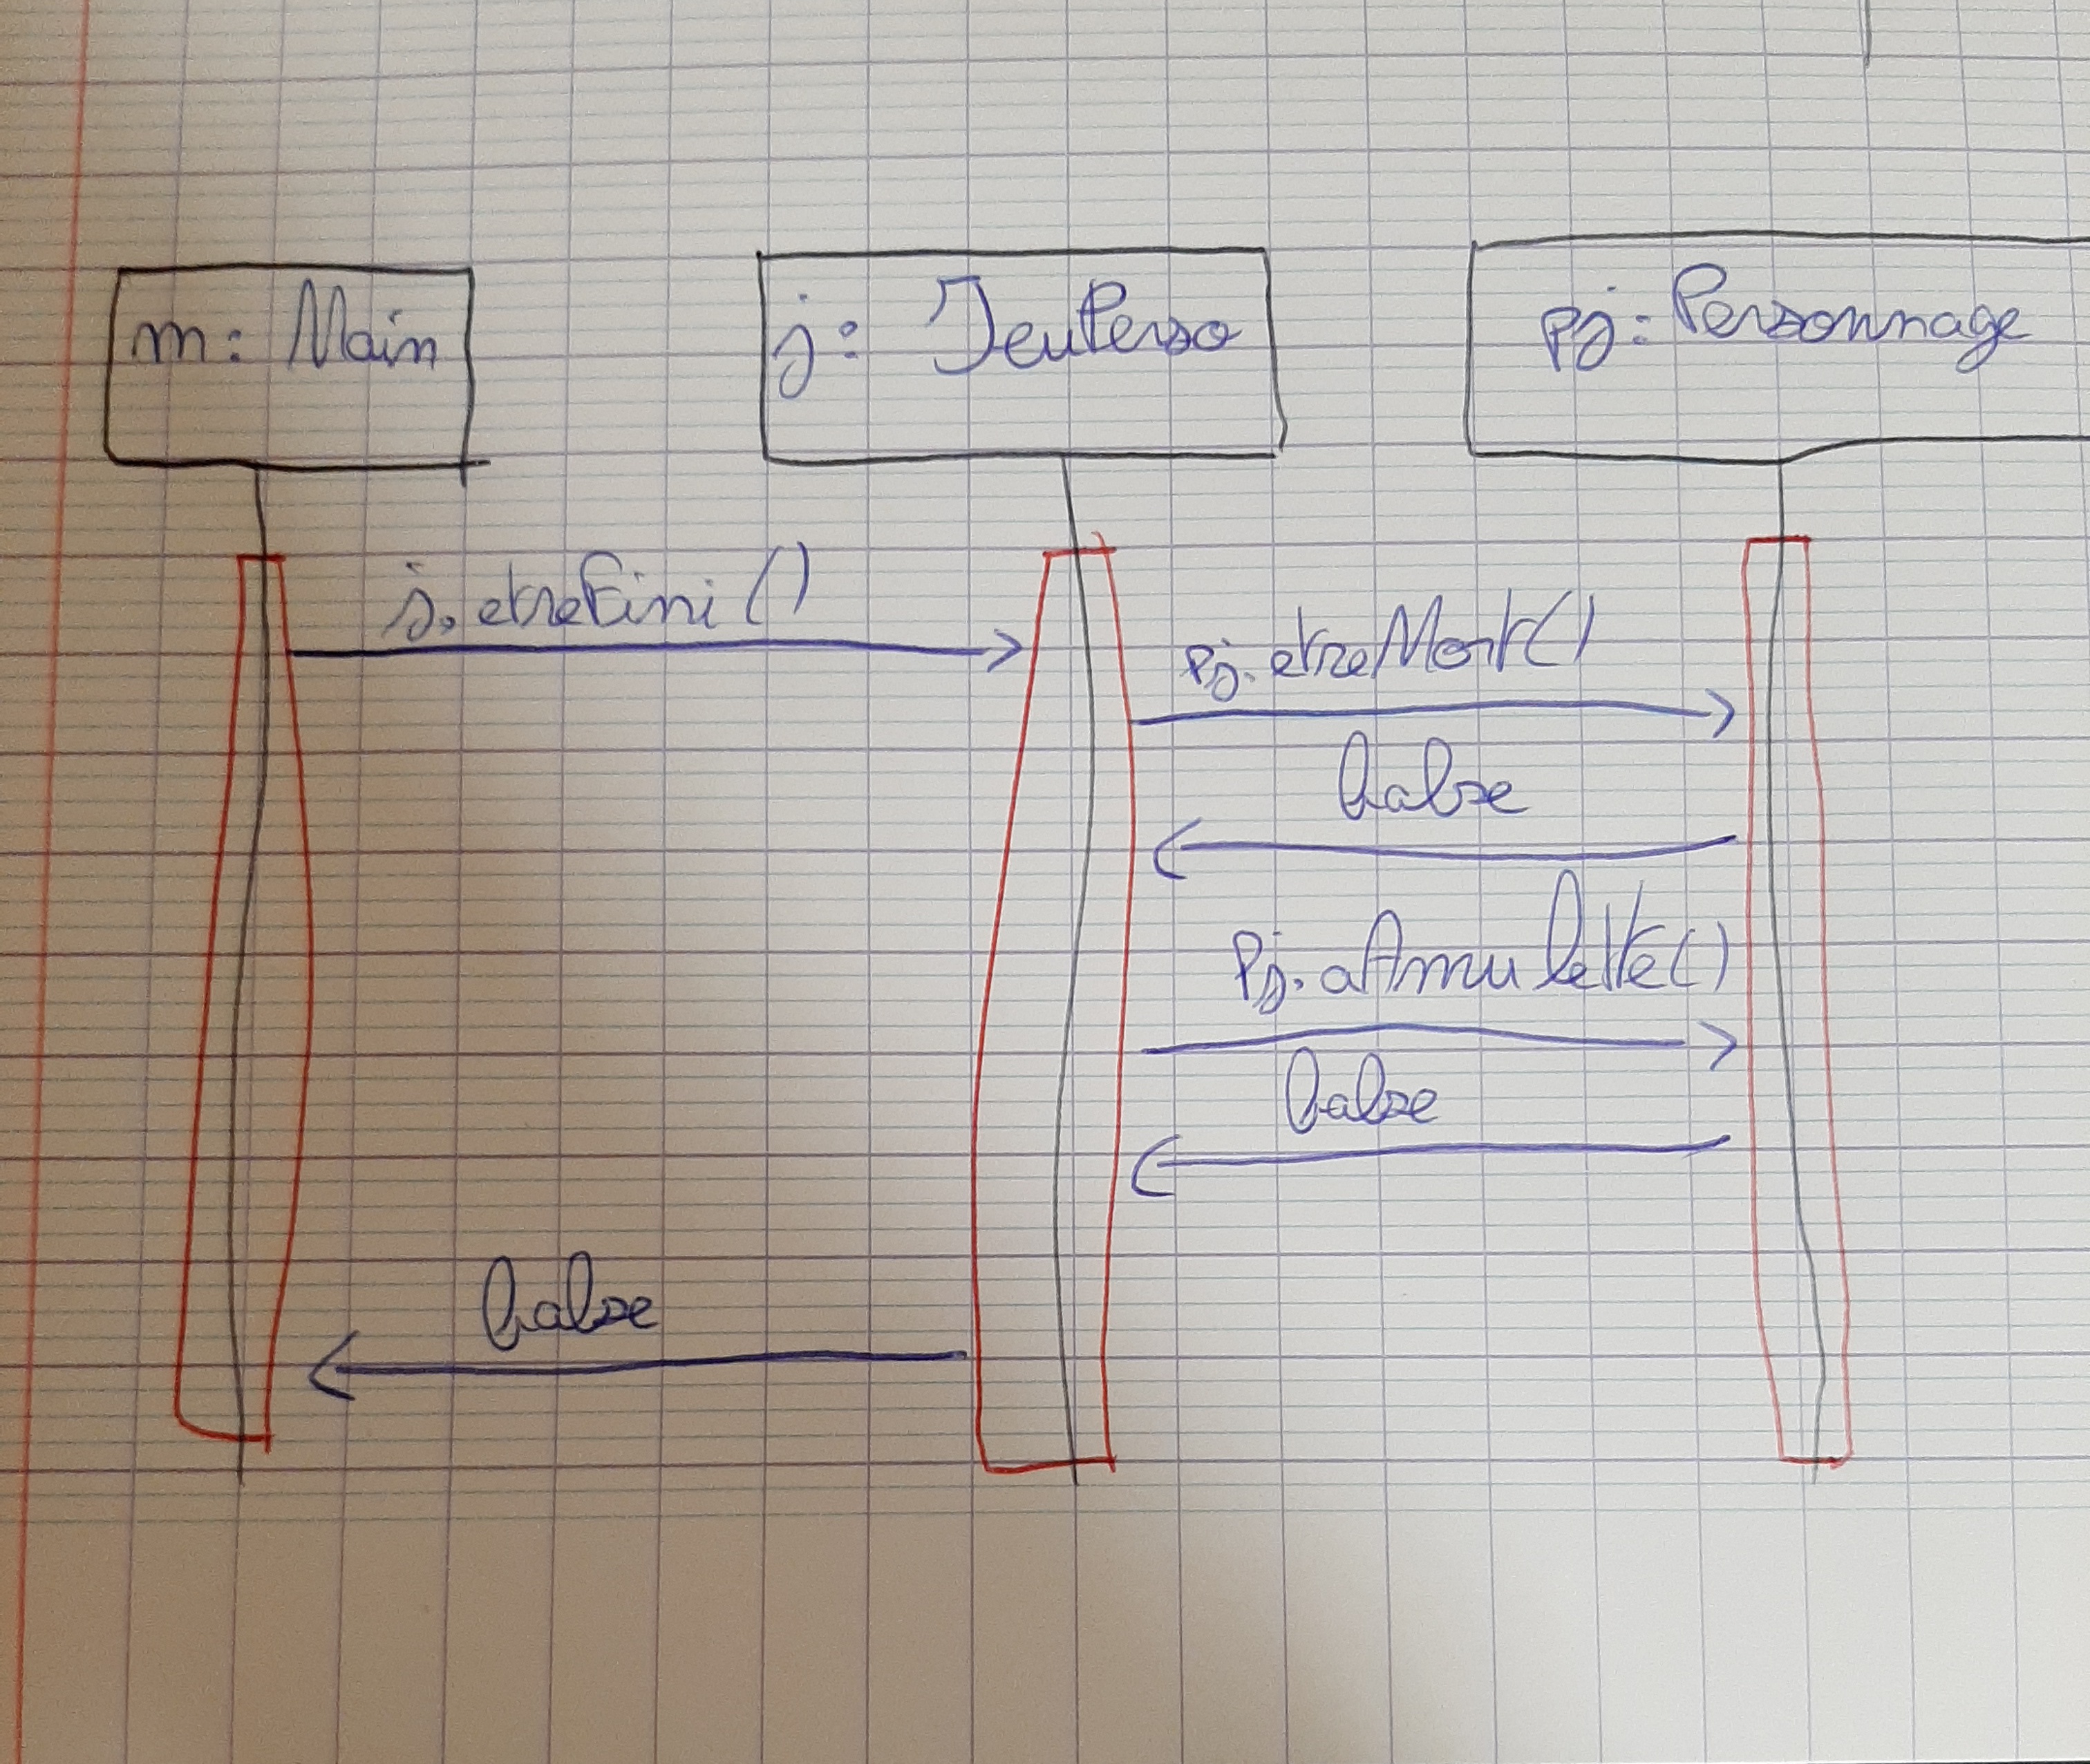 m: Main
j: JeuPerso
pj: Personnage
j.etreFini()
pj.etreMort()
false
pj.aAmulette()
false
false